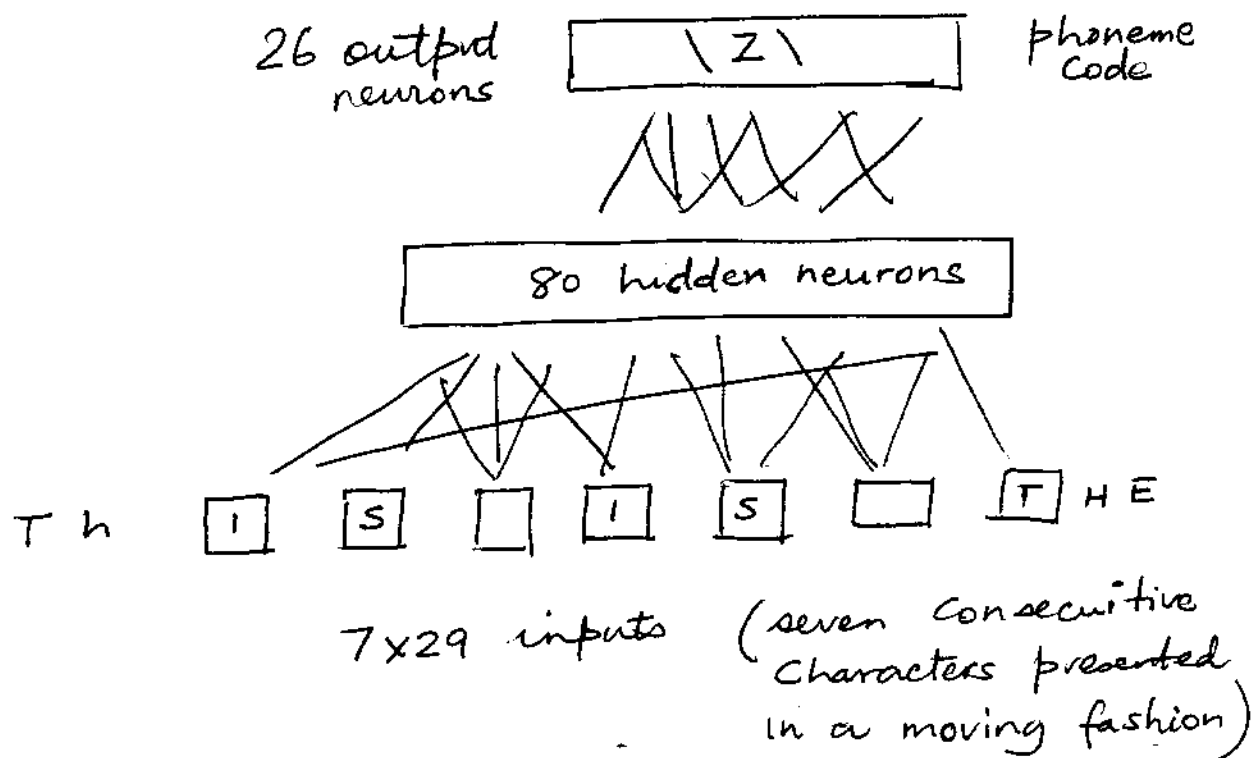 26 output
neurons
\ Z \
phoneme
Code
80 hidden neurons
T h I S I S T H E
7x29 inputs
(seven Consecuitive
Characters presented
in a moving fashion)